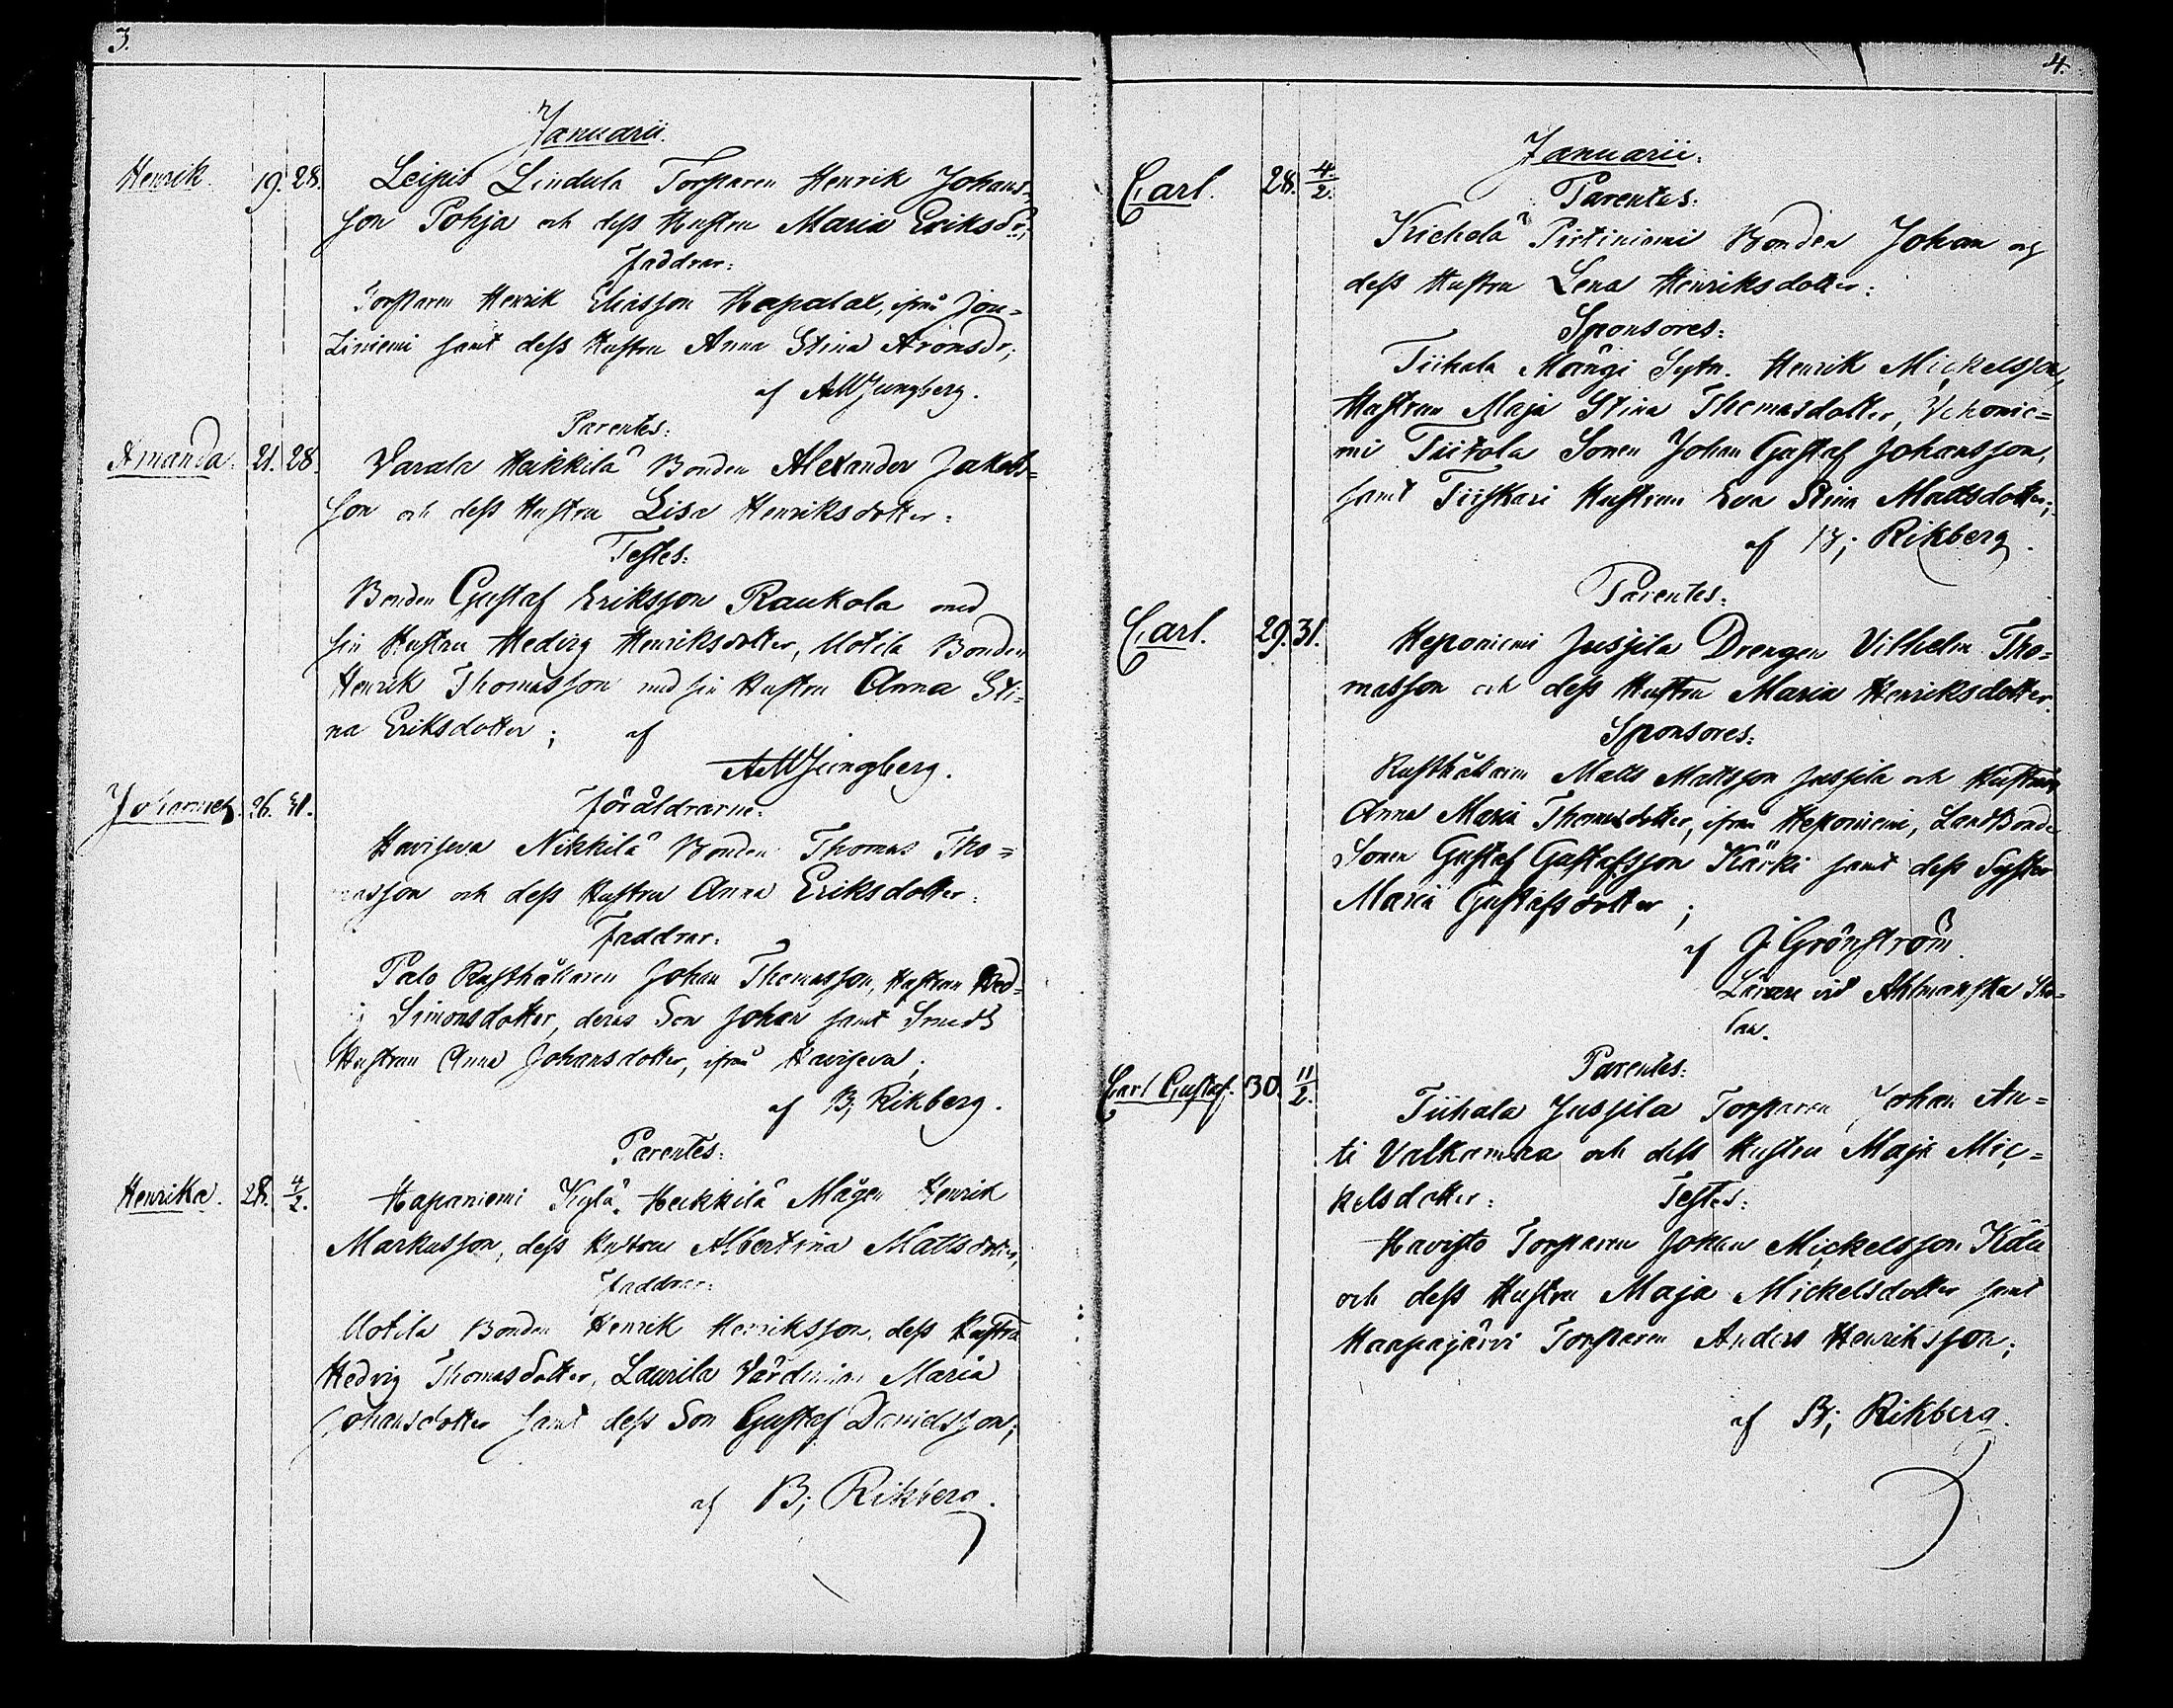 3.
Januarii.
Henrik. 19. 28. Leipis Lindula Torparen Henrik Johans-
son Pohja och dess Hustru Maria Eriksdr;
Faddrar:
Torparen Henrik Eliasson Hapalax, ifrån Jou-
tiniemi samt dess Hustru Anna Stina Aronsdr;
af AWLjungberg.
Parentes:
Amanda. 21. 28. Varala Heikkilä Bonden Alexander Jakobs-
son och dess Hustru Lisa Henriksdotter:
Testes:
Bonden Gustaf Eriksson Raukola med
sin Hustru Hedvig Henriksdotter, Uotila Bonden
Henrik Thomasson med sin Hustru Anna Sti-
na Eriksdotter; af
AWLjungberg.
Föräldrarne:
Johannes. 26. 31. Haviseva Nikkilä Bonden Thomas Tho-
masson och dess Hustru Anna Eriksdotter:
Faddrar:
Palo Rusthållaren Johan Thomasson, Hustrun Hed-
Simonsdotter, deras Son Johan samt Smeds
Hustrun Anna Johansdotter, ifrån Haviseva;
af B; Rikberg.
Parentes:
Henrika. 28. 4/2. Hapaniemi Kylä Heikkilä Mågen Henrik
Markusson, dess Hustru Albertina Mattsdotter,
Faddrar:
Uotila Bonden Henrik Henriksson, dess Hustru
Hedvig Thomasdotter, Laurila Värdinnan Maria
Johansdotter samt dess Son Gustaf Danielsson;
af B; Rikberg.
4.
Januarii.
Carl. 28. 4/2.
Parentes:
Kiehola Pirtiniemi Bonden Johan och
dess Hustru Lena Henriksdotter:
Sponsores:
Tiihala Mångi Sytn. Henrik Mickelsson,
Hustrun Maja Stina Thomasdotter, Vehonie-
mi Tiitola Sonen Johan Gustaf Johansson,
samt Hustrun Eva Stina Mattsdotter;
af B; Rikberg.
Parentes:
Carl. 29. 31. Heponiemi Jussila Drengen Vilhelm Tho-
masson och dess Hustru Maria Henriksdotter.
Sponsores:
Rusthållaren Matts Mattsson Jussila och Hustrun
Anna Maria Thomasdotter, ifrån Heponiemi, LandBonde
Sonen Gustaf Gustafsson Kärki samt dess Syster
Maria Gustafsdotter;
af J. Grönström
Lärare vid Ahlmanska Sko-
lan.
Parentes:
Carl Gustaf. 30. 11/2. Tiihala Jussila Torparen Johan An-
ti Valkamaa och dess Hustru Maja Mic-
kelsdotter: Testes:
Havisto Torparen Johan Mickelsson
och dess Hustru Maja Mickelsdotter samt
Haapajärvi Torparen Anders Henriksson;
af B; Rikberg.